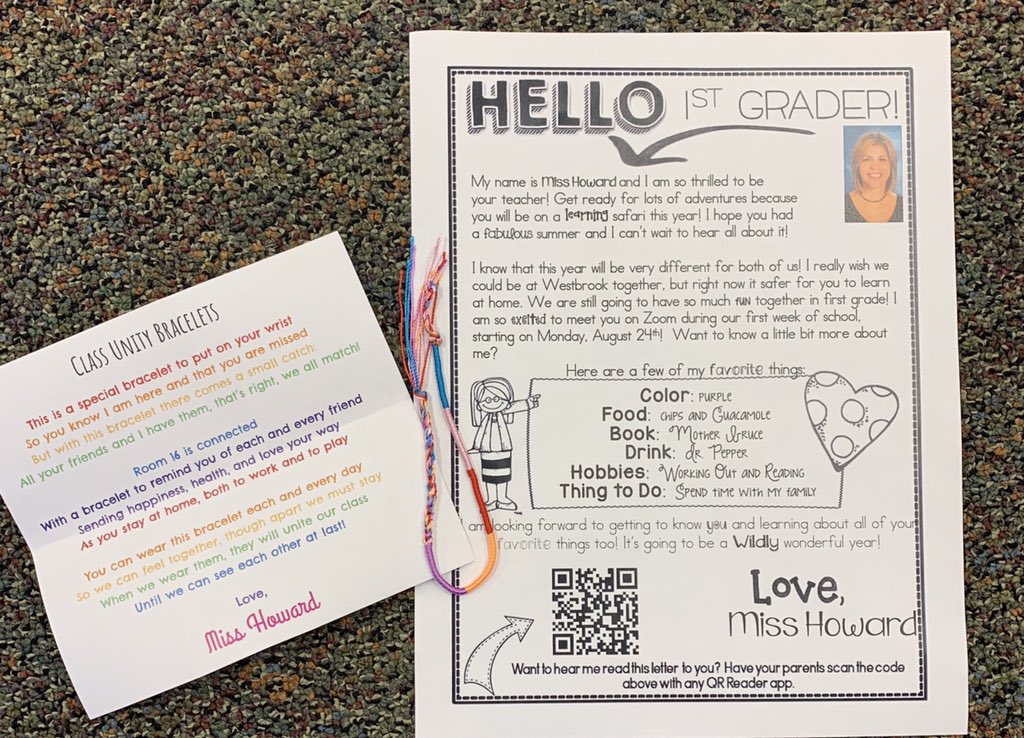 Class Unity Bracelets
This is a special bracelet to put on your wrist
So you know I am here and that you are missed
But with this bracelet there comes a small catch:
All your friends and I have them, that's right, we all match!
Room 16 is connected
With a bracelet to remind you of each and every friend
Sending happiness, health, and love your way
As you stay at home, both to work and to play
You can wear this bracelet each and every day
So we can feel together, though apart we must stay
When we wear them, they will unite our class
Until we can see each other at last!
Love,
Miss Howard
HELLO 1ST GRADER!
My name is Miss Howard and I am so thrilled to be
your teacher! Get ready for lots of adventures because
you will be on a learning safari this year! I hope you had
a fabulous summer and I can't wait to hear all about it!
I know that this year will be very different for both of us! I really wish we
could be at Westbrook together, but right now it safer for you to learn
at home. We are still going to have so much fun together in first grade! I
am so excited to meet you on Zoom during our first week of school,
starting on Monday, August 24th! Want to know a little bit more about
me?
Here are a few of my favorite things:
Color: purple
Food: chips and Guacamole
Book: Mother Bruce
Drink: Dr. Pepper
Hobbies: Working Out and Reading
Thing to Do: Spend time with my family
am looking forward to getting to know you and learning about all of your
favorite things too! It's going to be a Wildly wonderful year!
Love,
Miss Howard
Want to hear me read this letter to you? Have your parents scan the code
above with any QR Reader app.